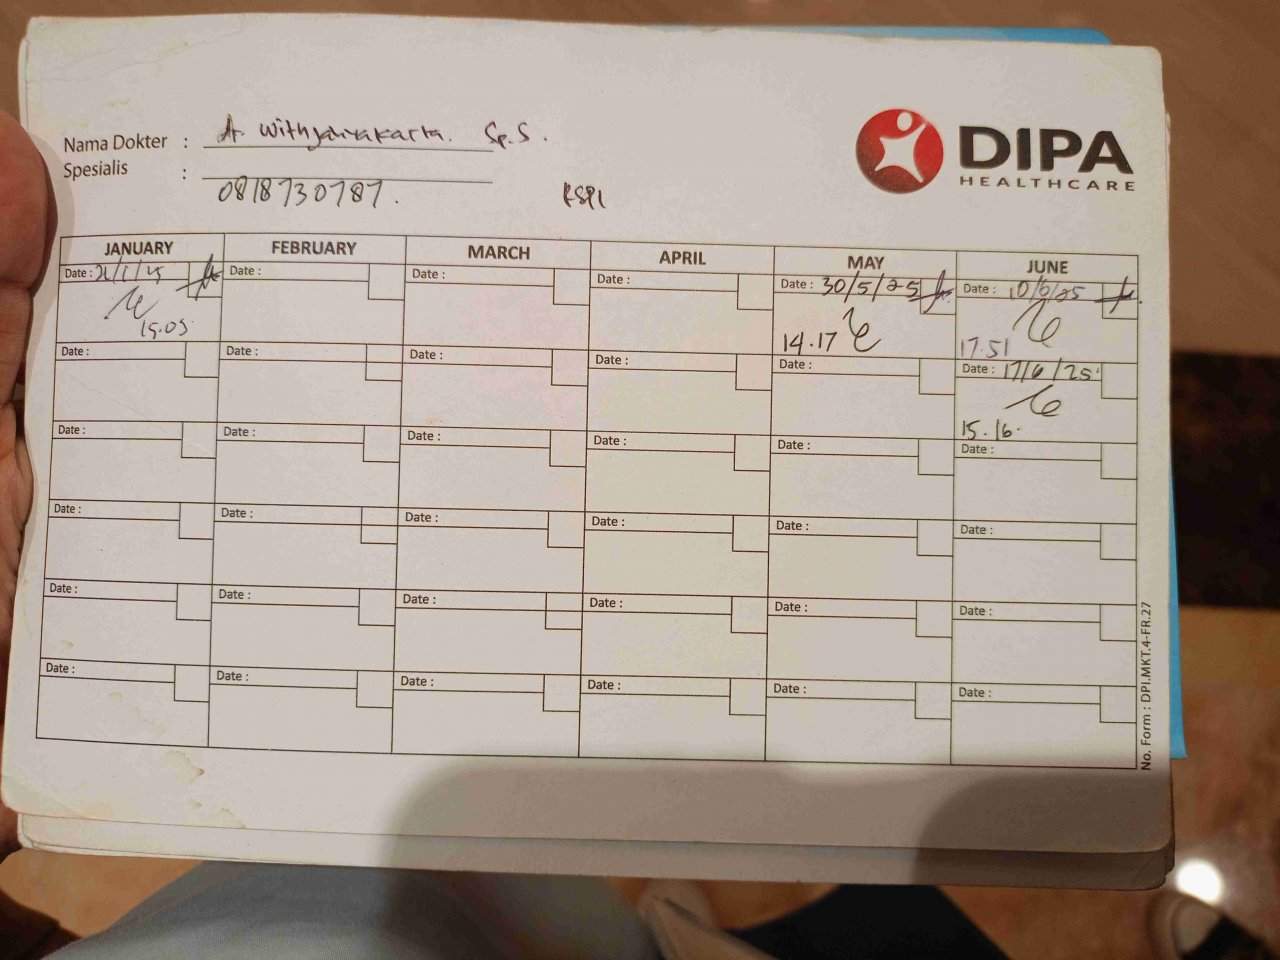 DIPA
HEALTHCARE
Nama Dokter : Sp.S.
Spesialis :
0818730787.
RSPI
JANUARY FEBRUARY MARCH APRIL MAY JUNE
Date : Date : Date : Date : Date : 30/5/25 Date : 10/6/25
15.05 14.17 17.51
Date : Date : Date : Date : Date : Date : 17/6/25
15.16.
Date : Date : Date : Date : Date : Date :
Date : Date : Date : Date : Date : Date :
Date : Date : Date : Date : Date : Date :
Date : Date : Date : Date : Date : Date :
No. Form : DPI.MKT.4-FR.27